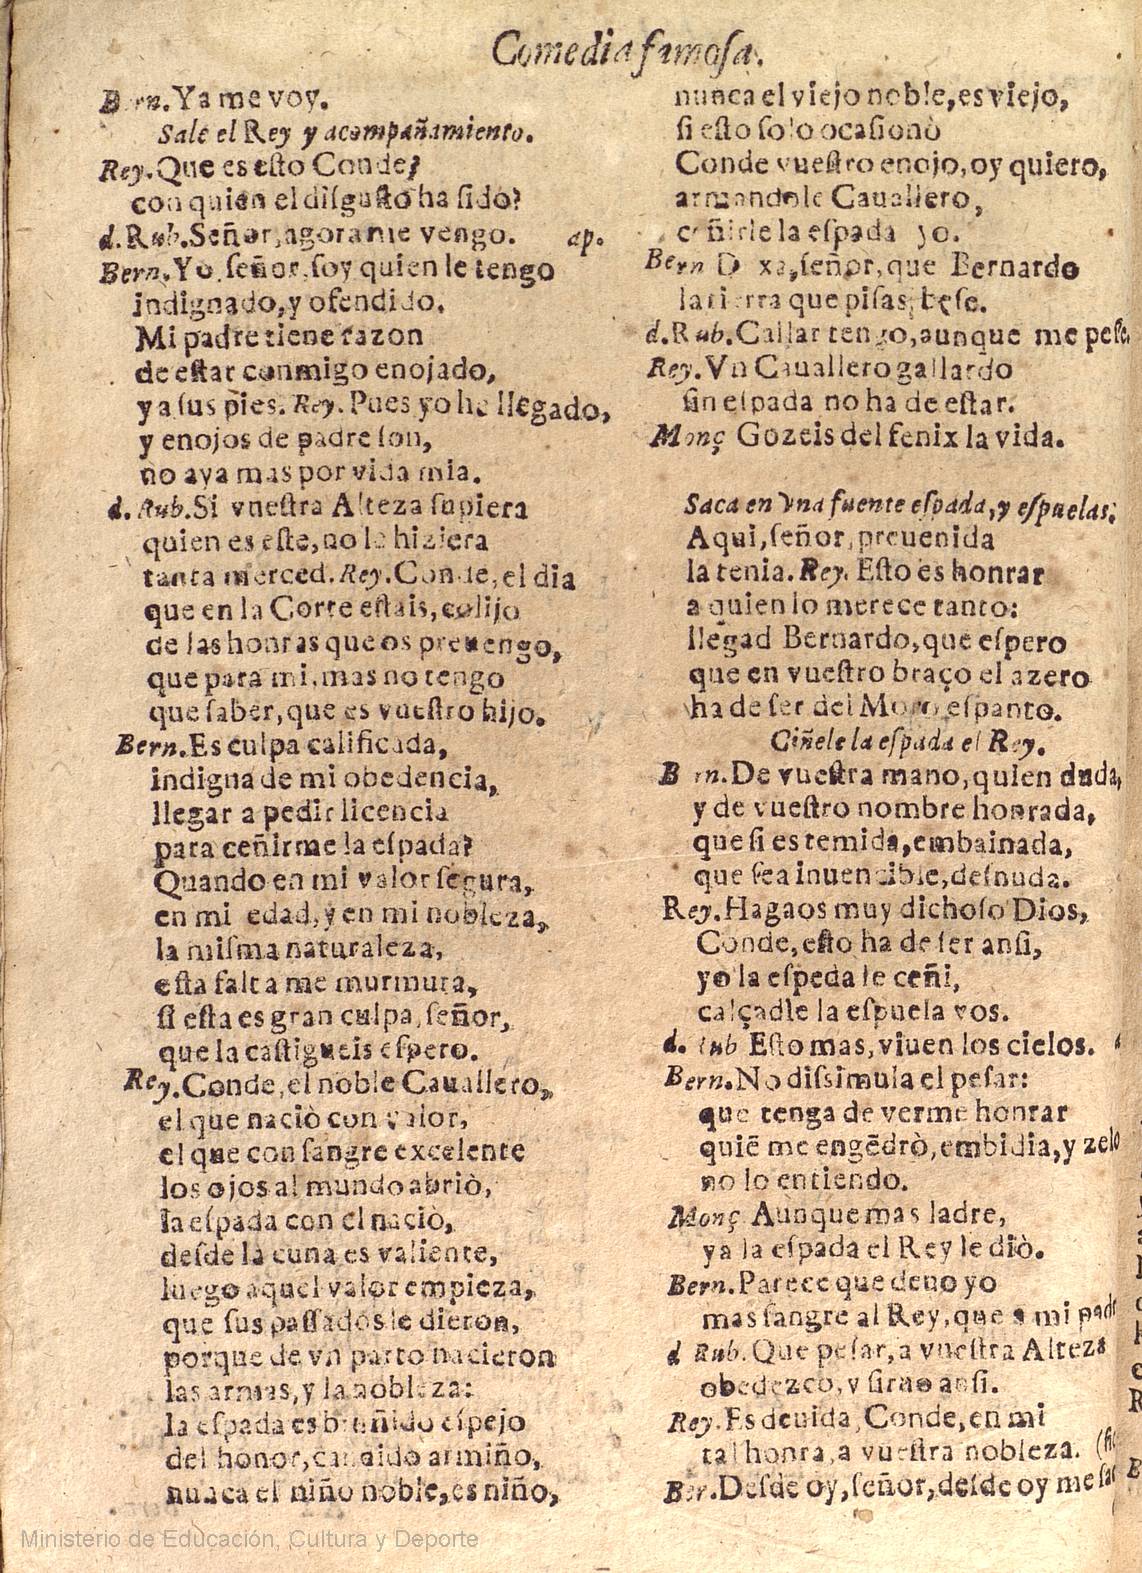 Comedia famosa.
Bern. Ya me voy.
Sale el Rey y acompañamiento.
Rey. Que es esto Conde?
con quien el disgusto ha sido?
d. Rub. Señor, agora me vengo. ap.
Bern. Yo, señor, soy quien le tengo
indignado, y ofendido.
Mi padre tiene razon
de estar conmigo enojado,
y a sus pies. Rey. Pues yo he llegado,
y enojos de padre son,
no aya mas por vida mia.
d. Rub. Si vuestra Alteza supiera
quien es este, no le hiziera
tanta merced. Rey. Conde, el dia
que en la Corte estais, colijo
de las honras que os preuengo,
que para mi, mas no tengo
que saber, que es vuestro hijo.
Bern. Es culpa calificada,
indigna de mi obedencia,
llegar a pedir licencia
para ceñirme la espada?
Quando en mi valor segura,
en mi edad, y en mi nobleza,
la misma naturaleza,
esta falta me murmura,
si esta es gran culpa, señor,
que la castigueis espero.
Rey. Conde, el noble Cauallero,
el que naciò con valor,
el que con sangre excelente
los ojos al mundo abriò,
la espada con el naciò,
desde la cuna es valiente,
luego aquel valor empieza,
que sus passados le dieron,
porque de vn parto nacieron
las armas, y la nobleza:
la espada es bruñido espejo
del honor, candido armiño,
nunca el niño noble, es niño,
nunca el viejo noble, es viejo,
si esto solo ocasionò
Conde vuestro enojo, oy quiero,
armandole Cauallero,
ceñirle la espada yo.
Bern D xa, señor, que Bernardo
la tierra que pisas, bese.
d. Rub. Callar tengo, aunque me pese.
Rey. Vn Cauallero gallardo
sin espada no ha de estar.
Monç Gozeis del fenix la vida.
Saca en vna fuente espada, y espuelas.
Aqui, señor, preuenida
la tenia. Rey. Esto es honrar
a quien lo merece tanto:
llegad Bernardo, que espero
que en vuestro braço el azero
ha de ser del Moro espanto.
Ciñele la espada el Rey.
B rn. De vuestra mano, quien duda,
y de vuestro nombre honrada,
que si es temida, embainada,
que sea inuencible, desnuda.
Rey. Hagaos muy dichoso Dios,
Conde, esto ha de ser ansi,
yo la espeda le ceñi,
calçadle la espuela vos.
d. Rub Esto mas, viuen los cielos.
Bern. No dissimula el pesar:
que tenga de verme honrar
quiē me engēdrò, embidia, y zelo
no lo entiendo.
Monç Aunque mas ladre,
ya la espada el Rey le diò.
Bern. Parece que deuo yo
mas sangre al Rey, que a mi padr
d Rub. Que pesar, a vuestra Alteza
obedezco, y siruo ansi.
Rey. Es deuida, Conde, en mi
tal honra, a vuestra nobleza.
Ber. Desde oy, señor, desde oy me
Ministerio de Educación, Cultura y Deporte